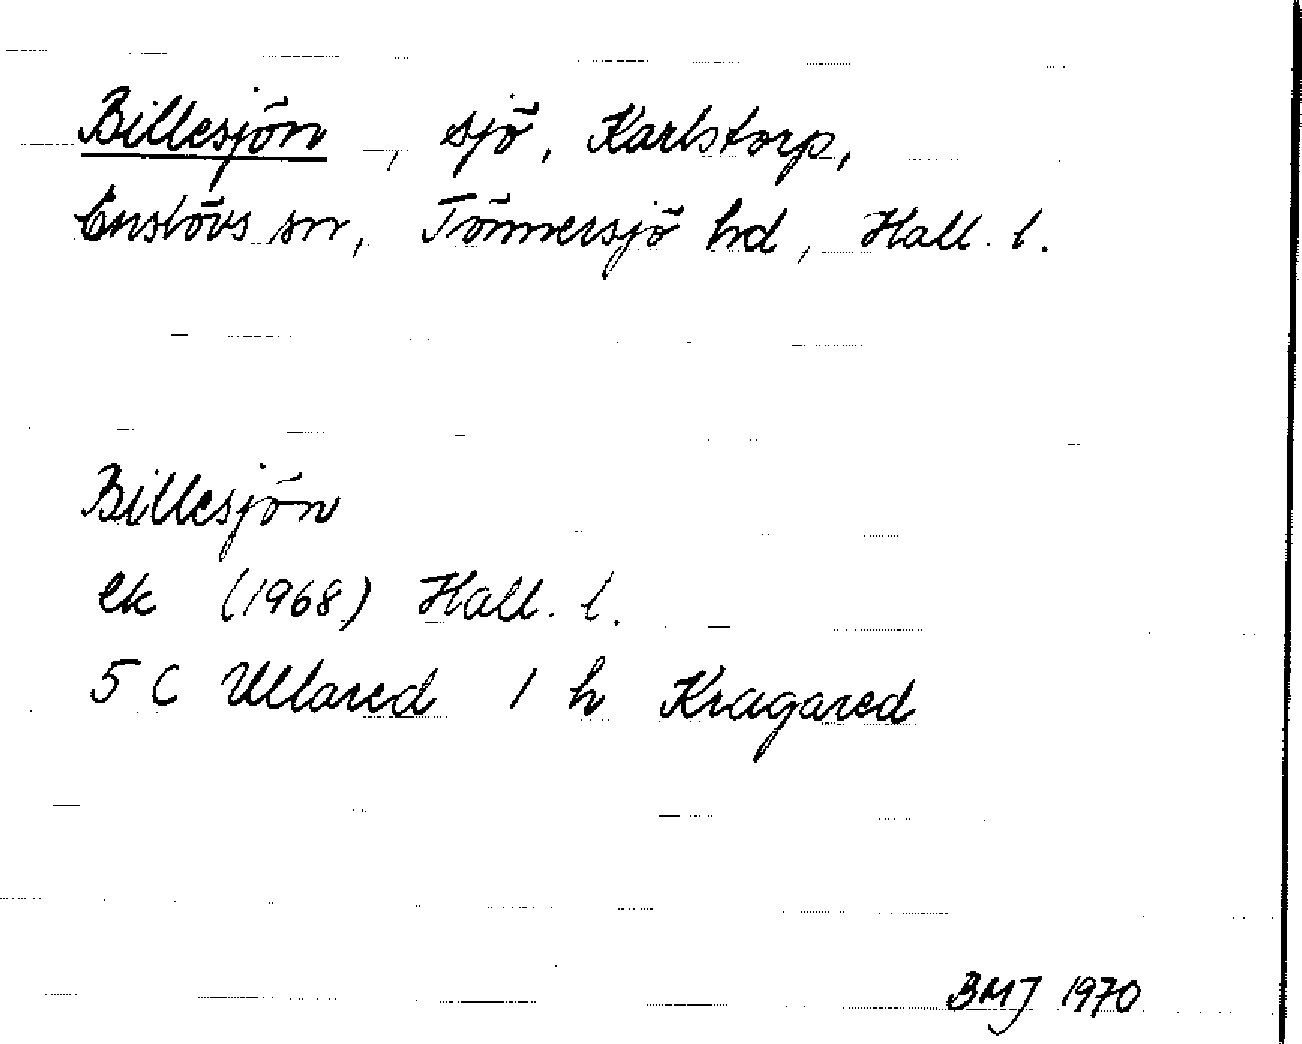 Billesjön, sjö, Karlstorp,
Enslövs sn, Tönnersjö hd, Hall. l.
Billesjön
ek (1968) Hall. l.
5 C Ullared 1 h Kragared
BMJ 1970